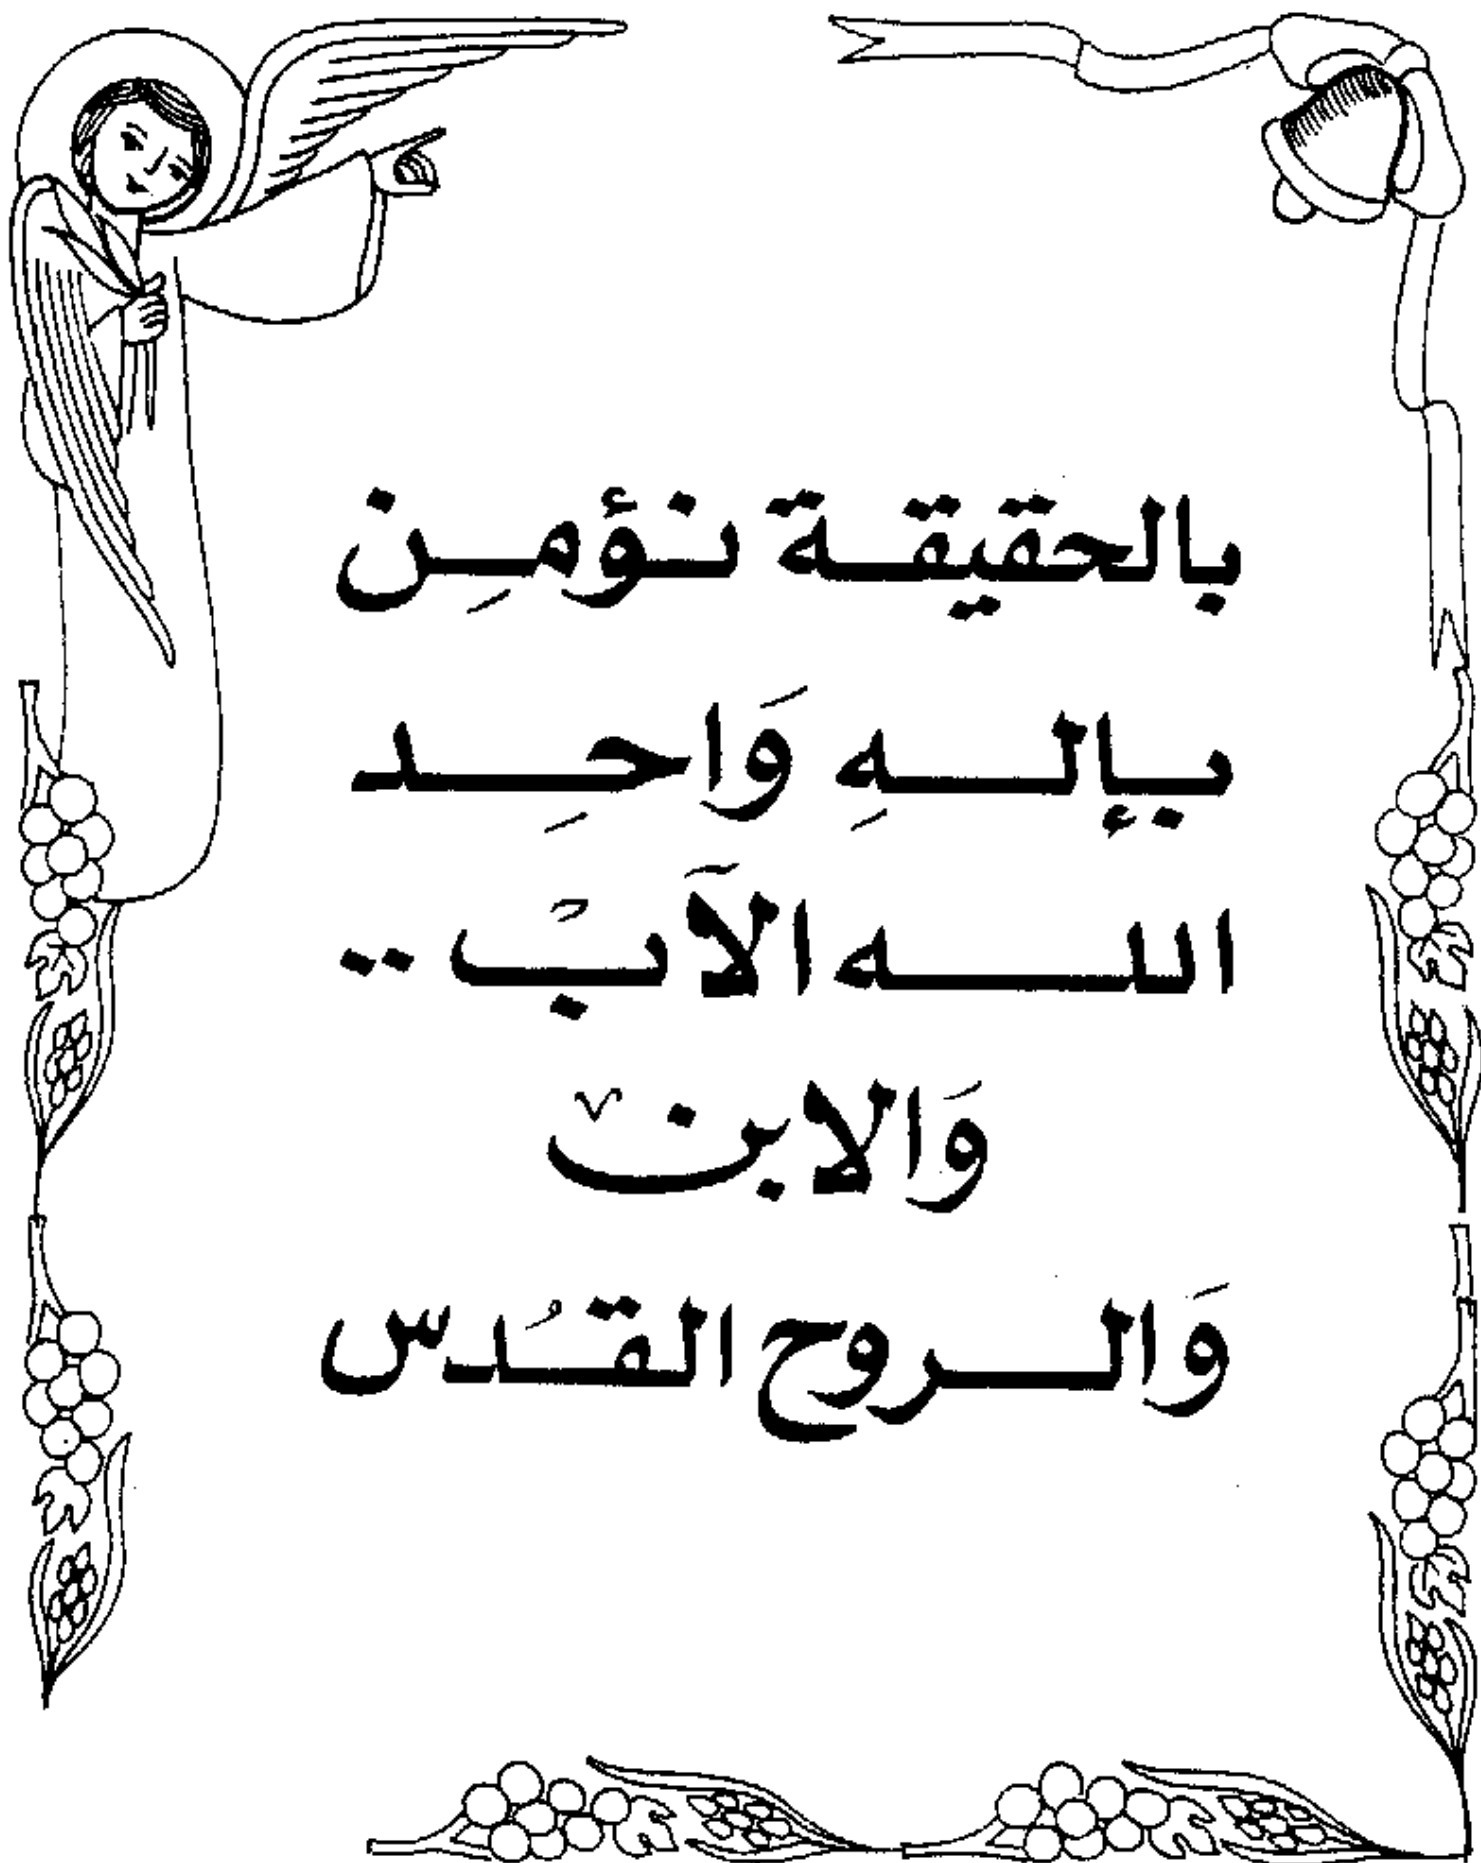 بالحقيقة نؤمِن
بإلهِ وَاحِد
الله الآب ..
وَالابن
وَالروح القُدس